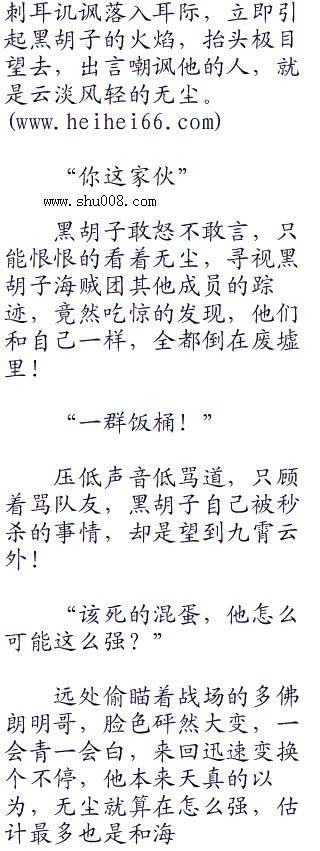 刺耳讥讽落入耳际，立即引
起黑胡子的火焰，抬头极目
望去，出言嘲讽他的人，就
是云淡风轻的无尘。
(www.heihei66.com)
“你这家伙”
www.shu008.com
黑胡子敢怒不敢言，只
能恨恨的看着无尘，寻视黑
胡子海贼团其他成员的踪
迹，竟然吃惊的发现，他们
和自己一样，全都倒在废墟
里！
“一群饭桶！”
压低声音低骂道，只顾
着骂队友，黑胡子自己被秒
杀的事情，却是望到九霄云
外！
“该死的混蛋，他怎么
可能这么强？”
远处偷瞄着战场的多佛
朗明哥，脸色砰然大变，一
会青一会白，来回迅速变换
个不停，他本来天真的以
为，无尘就算在怎么强，估
计最多也是和海